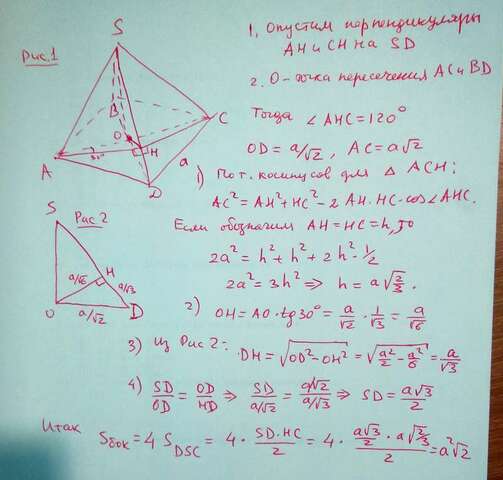 Рис.1
S
B
O
H
C
A
30°
D
a
1, Опустим перпендикуляры
AH и CH на SD
2. O - точка пересечения AC и BD
Тогда ∠AHC = 120°
OD = a/√2, AC = a√2
1) По т. косинусов для △ ACH:
AC² = AH² + HC² - 2 AH·HC·cos∠AHC.
Если обозначим AH = HC = h, то
2a² = h² + h² + 2h²·1/2
2a² = 3h² ⇒ h = a√(2/3).
Рис 2
S
a/√6
H
a/√3
O
a/√2
D
2) OH = AO·tg30° = a/√2 · 1/√3 = a/√6
3) Из Рис 2: DH = √(OD² - OH²) = √(a²/2 - a²/6) = a/√3
4) SD/OD = OD/HD ⇒ SD/(a/√2) = (a/√2)/(a/√3) ⇒ SD = a√3/2
Итак Sбок = 4 S_DSC = 4 · SD·HC/2 = 4 · (a√3/2 · a√(2/3))/2 = a²√2